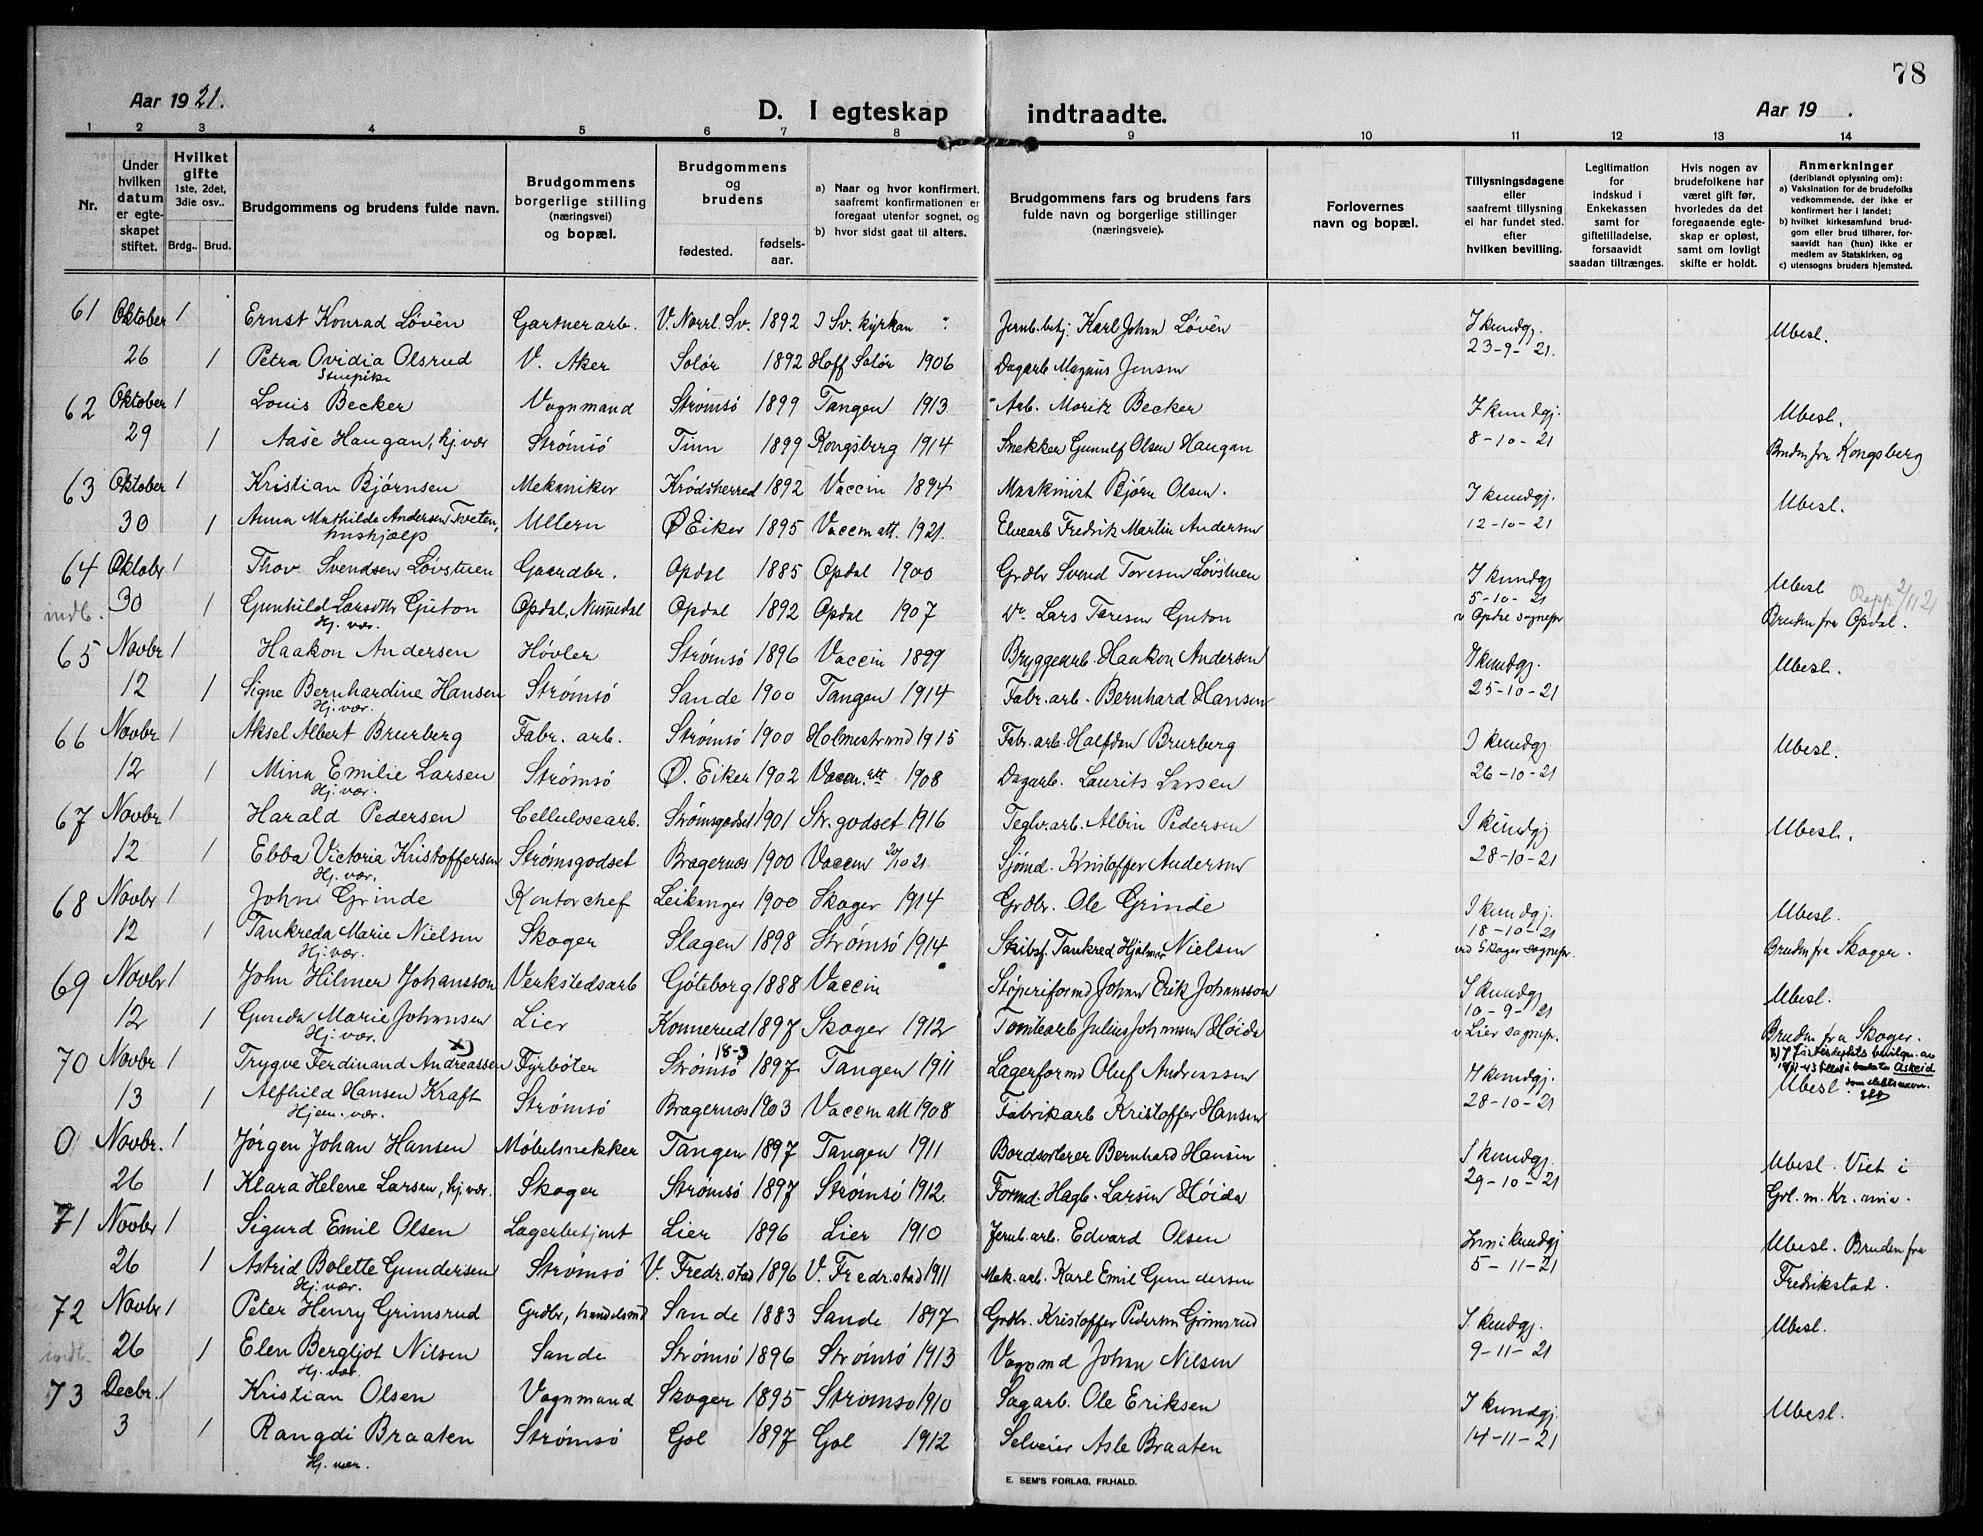 78
Aar 1921.
D. I egteskap indtraadte.
Aar 19 .
1 2 3 4 5 6 7 8 9 10 11 12 13 14
Nr.
Under hvilken datum er egteskapet stiftet.
Hvilket gifte 1ste, 2det, 3die osv.. Brdg.. Brud.
Brudgommens og brudens fulde navn.
Brudgommens borgerlige stilling (næringsvei) og bopæl.
Brudgommens og brudens fødested. fødselsaar.
a) Naar og hvor konfirmert, saafremt konfirmationen er foregaat utenfor sognet, og
b) hvor sidst gaat til alters.
Brudgommens fars og brudens fars fulde navn og borgerlige stillinger (næringsveie).
Forlovernes navn og bopæl.
Tillysningsdagene eller saafremt tillysning ei har fundet sted. efter hvilken bevilling.
Legitimation for indskud i Enkekassen samt for giftetilladelse, forsaavidt saadan tiltrænges.
Hvis nogen av brudefolkene har været gift før, hvorledes da det foregaaende egteskap er opløst, samt om lovligt skifte er holdt.
Anmerkninger (deriblandt oplysning om): a) Vaksination for de brudefolks vedkommende, der ikke er konfirmert her i landet; b) hvilket kirkesamfund brudgom eller brud tilhører, forsaavidt han (hun) ikke er medlem av Statskirken, og c) utensogns bruders hjemsted.
61 Oktober 1 Ernst Konrad Løvén Gartnerarb. V. Norrl. Sv. 1892 I Sv. kyrkan Jernb.betj. Karl Johan Løvén I kundgj. 23-9-21. Ubesl.
26 1 Petra Ovidia Olsrud V. Aker Solør 1892 Hoff Solør 1906 Dagarb Magnus Jensen
Stuepike
62 Oktober 1 Louis Becker Vognmand Strømsó 1899 Tangen 1913 Arb. Moritz Becker I kundgj. 8-10-21 Ubesl.
29 1 Aase Haugan, hj. vær Strømsó Tinn 1899 Kongsberg 1914 Snekker Gunulf Olsen Haugan Bruden fra Kongsberg
63 Oktober 1 Kristian Bjørnsen Mekaniker Krødsherred 1892 Vaccin 1894 Maskinist Bjørn Olsen. I kundgj. 12-10-21 Ubesl.
30 1 Anna Mathilde Andersen Tveten, Ullern Ø Eiker 1895 Vaccin att. 1921. Elvearb Fredrik Martin Andersen
hushjælp
64 Oktobr 1 Thov Svendsen Løvstuen Gaardbr. Opdal 1885 Opdal 1900 Grdbr Svend Toresen Løvstuen I kundgj 5-10-21 Ubesl
indb. 30 1 Gunhild Larsdtr Guton Opdal, Numedal Opdal 1892 Opdal 1907 Do Lars Toresen Guton v Opdal sognepr Bruden fra Opdal. 2/11 21
Hj. vær.
65 Novbr 1 Haakon Andersen Høvler Strømsó 1896 Vaccin 1899 Bryggearb. Haakon Andersen I kundgj. 25-10-21 Ubesl.
12 1 Signe Bernhardine Hansen Strømsó Sande 1900 Tangen 1914 Fabr.arb. Bernhard Hansen
Hj. vær.
66 Novbr 1 Aksel Albert Brurberg Fabr. arb. Strømsó 1900 Holmestrand 1915 Fabr.arb. Halfdan Brurberg I kundgj. 26-10-21 Ubesl.
12 1 Mina Emilie Larsen Strømsó Ø. Eiker 1902 Vaccin. att 1908 Dagarb. Laurits Larsen
Hj. vær.
67 Novbr 1 Harald Pedersen Cellulosearb. Strømsgodset 1901 Str. godset 1916 Teglv.arb. Albin Pedersen I kundgj 28-10-21 Ubesl.
12 1 Ebba Victoria Kristoffersen Strømsgodset Bragernæs 1900 Vaccin 20/10 21 Sjømd. Kristoffer Andersen
Hj. vær.
68 Novbr 1 John Grinde Kontorchef Leikanger 1900 Skoger 1914 Grdbr. Ole Grinde I kundgj. 18-10-21 Ubesl.
12 1 Tankreda Marie Nielsen Skoger Slagen 1898 Strømsó 1914 Skibsf. Tankred Hjalmar Nielsen ved Skoger sognepr. Bruden fra Skoger.
Hj. vær.
69 Novbr 1 John Hilmer Johansson Verkstedsarb Göteborg 1888 Vaccin Støperiformd Johan Erik Johansson I kundgj 10-9-21 Ubesl.
12 1 Gunda Marie Johansen Lier Konnerud 1897 Skoger 1912 Tomtearb Julius Johansen Høida v. Lier sognepr. Bruden fra Skoger.
Hj. vær.
70 Novbr 1 Trygve Ferdinand Andreassen x) Fyrbøter Strømsó 18-3 1897 Tangen 1911 Lagerformd Oluf Andreassen I kundgj. 28-10-21 Ubesl.
13 1 Alfhild Hansen Kraft Strømsó Bragernæs 1903 Vaccin att 1908 Fabrikarb Kristoffer Hansen
Hjem. vær.
x) Askeid som slektsnavn.
0 Novbr. 1 Jørgen Johan Hansen Møbelsnekker Tangen 1897 Tangen 1911 Bordsorterer Bernhard Hansen I kundgj. 29-10-21 Ubesl. Viet i
26 1 Klara Helene Larsen, hj. vær. Skoger Strømsó 1897 Strømsó 1912 Formd. Hagb. Larsen Høida Grl. m. Kr.ania.
71 Novbr 1 Sigurd Emil Olsen Lagerbetjent Lier 1896 Lier 1910 Jernb.arb. Edvard Olsen Inni kundgj 5-11-21 Ubesl. Bruden fra
26 1 Astrid Bolette Gundersen Strømsó V. Fredr.stad 1896 V. Fredr.stad 1911 Mek.arb. Karl Emil Gundersen Fredrikstad.
Hj. vær.
72 Novbr 1 Peter Henry Grimsrud Grdbr, handelsmd Sande 1883 Sande 1897 Grdbr. Kristoffer Pedersen Grimsrud I kundgj. 9-11-21 Ubesl.
indb. 26 1 Elen Bergljot Nilsen Sande Strømsó 1896 Strømsó 1913 Vognmd Johan Nilsen
Hj. vær.
73 Decbr. 1 Kristian Olsen Vognmand Skoger 1895 Strømsó 1910 Sagarb. Ole Eriksen I kundgj. 14-11-21 Ubesl.
3 1 Rangdi Braaten Strømsó Gol 1897 Gol 1912 Selveier Asle Braaten
Hj. vær.
E. SEM'S FORLAG, FR.HALD.